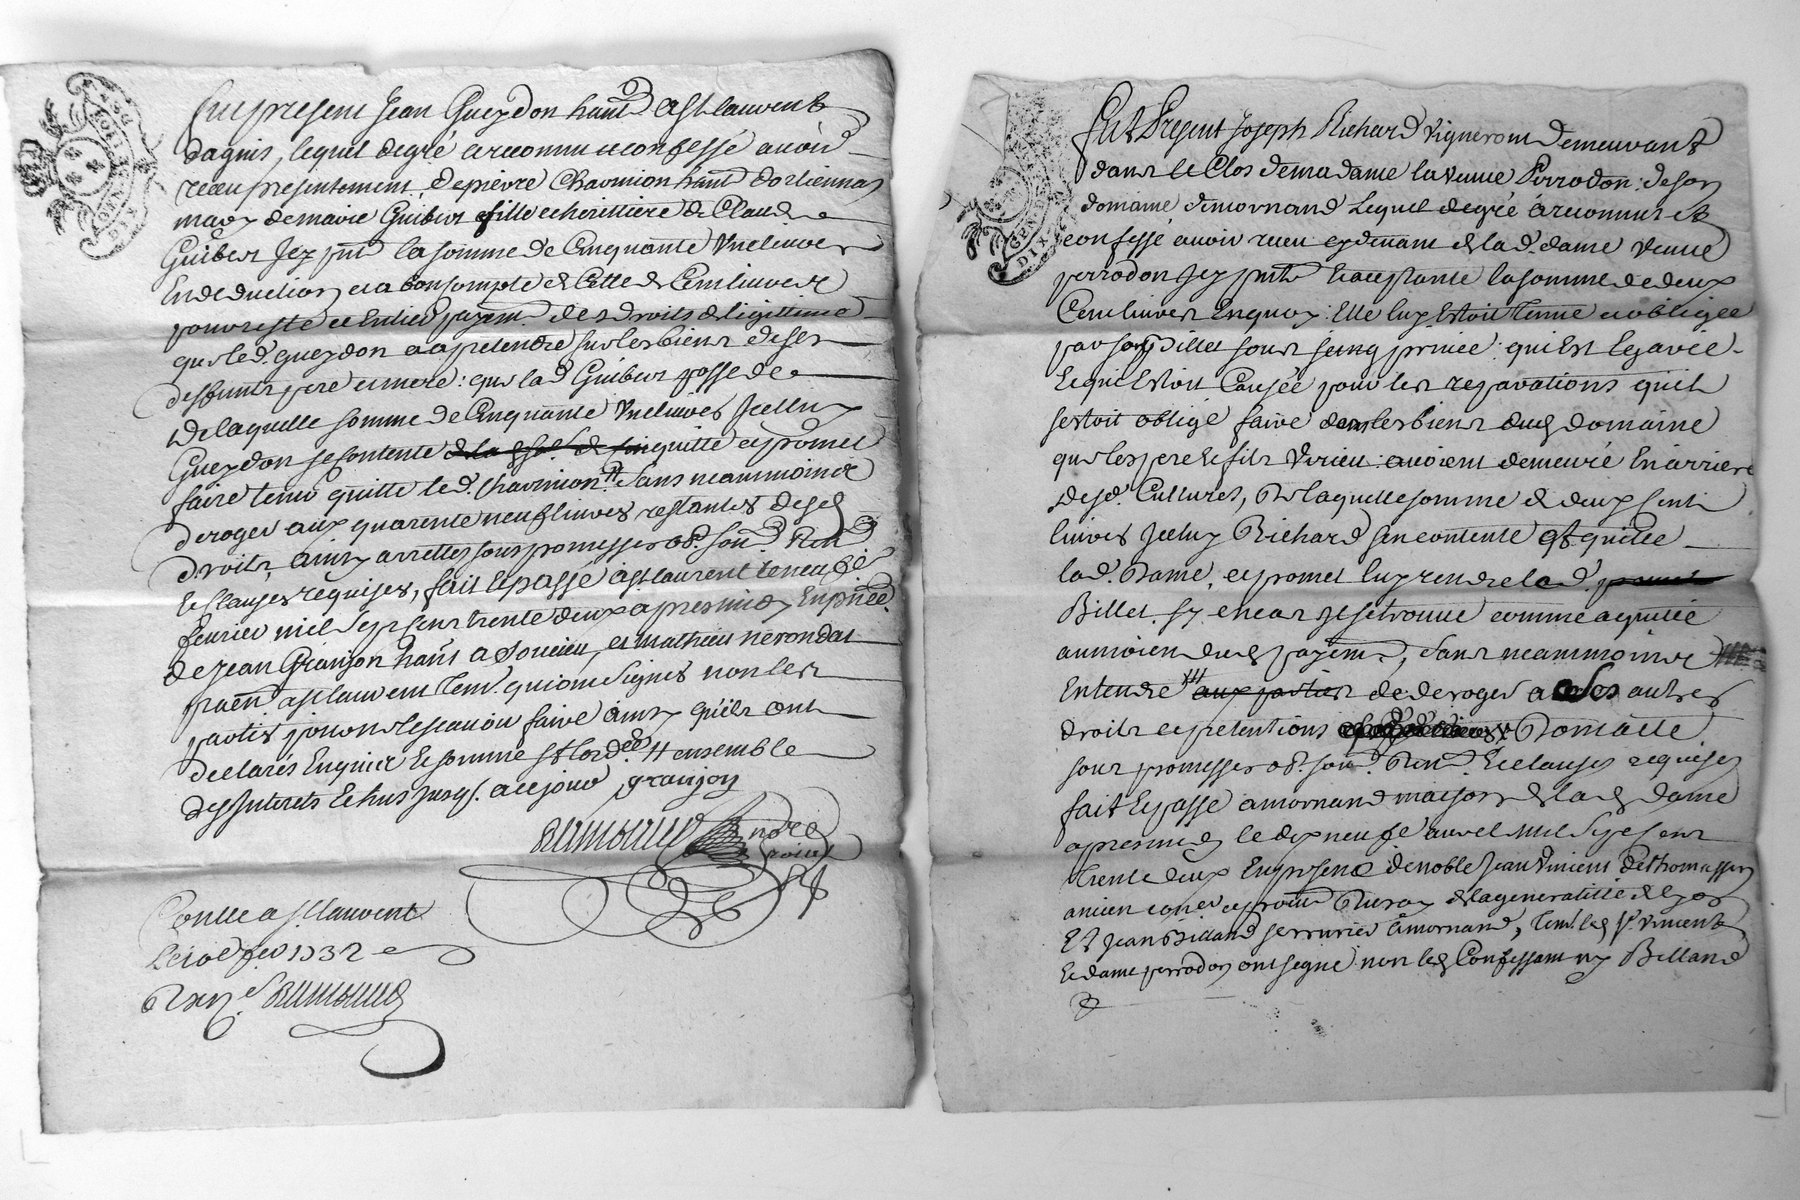 fut present Jean Gueydon hant a St laurent
dagnis, lequel degré a reconnu et confessé auoir
receu presentement de pierre Charmion hant dorliennas
mary de marie Guibert fille et herittiere de Claude
Guibert Jcy pnt la somme de Cinquante Vne liures
En deduction et a bon compte de Celle de Cent liures
pour reste et Entier payemt des droits de legittime
que led. gueydon a a pretendre sur les biens de ses
deffunts pere et mere: que lad Guibert possede
de laquelle somme de Cinquante Vne liures Jcelluy
Gueydon se Contente quitte et promet
faire tenir quitte led. Charmion sans neammoings
deroger aux quarente neuf liures restantes desd
droits, ainsy arrettes sous promesses ob. soum. Ren
et Clauses requises, fait et passé a st laurent le neufe
feurier mil sept cent trente deux apres midy En pnce
de Jean Granjon hant a Soucieu et mathieu nerondat
hant a st laurent tem. qui ont signes non les
parties pour ne scauoir faire ainsy qu'ils ont
declarés Enquis et somme st lordce # ensemble
des Interets Echus jusq. a ce jour granjon
Conlle a st laurent
Le 10e feu 1732
fut Present Joseph Richard Vigneront demeurant
dans le Clos de madame la veuue Perrodon: de son
domaine de mornand Lequel degré a reconnu et
confessé auoir receu cy deuant de lad. dame veuue
perrodon Jcy pnte et acceptante la somme de deux
Cent liures Enquoy: Elle luy Estoit tenue et obligée
par son Billet sous seing priuée: qui Est Egarée
Lequel Estoit Causée pour les reparations quil
sestoit obligé faire dans les biens dud domaine
que les pere et fils Virieu: auoient demeuré En arriere
desd. Cultures, De laquelle somme de deux Cent
liures Jcelluy Richard sen contente et quitte
lad. Dame, et promet luy rendre led.
Billet sy en cas Il se trouue comme acquitté
au moien dud payemt, sans neammoings
Entendre aux parties de deroger a Ses autres
droits et pretentions Dont acte
sous promesses ob. soum. Ren. et clauses requises
fait Et passé a mornand maison de lad dame
apres midy le dix neufe auril Mil Sept Cent
trente deux En presence de noble Jean Vincent Dethomassin
ancien et du Roy de la generalitté de Lyon
Et Jean Billand serrurier a mornand, tem. led sr. Vincent
Et dame perrodon ont signé non led Confessant ny Billand